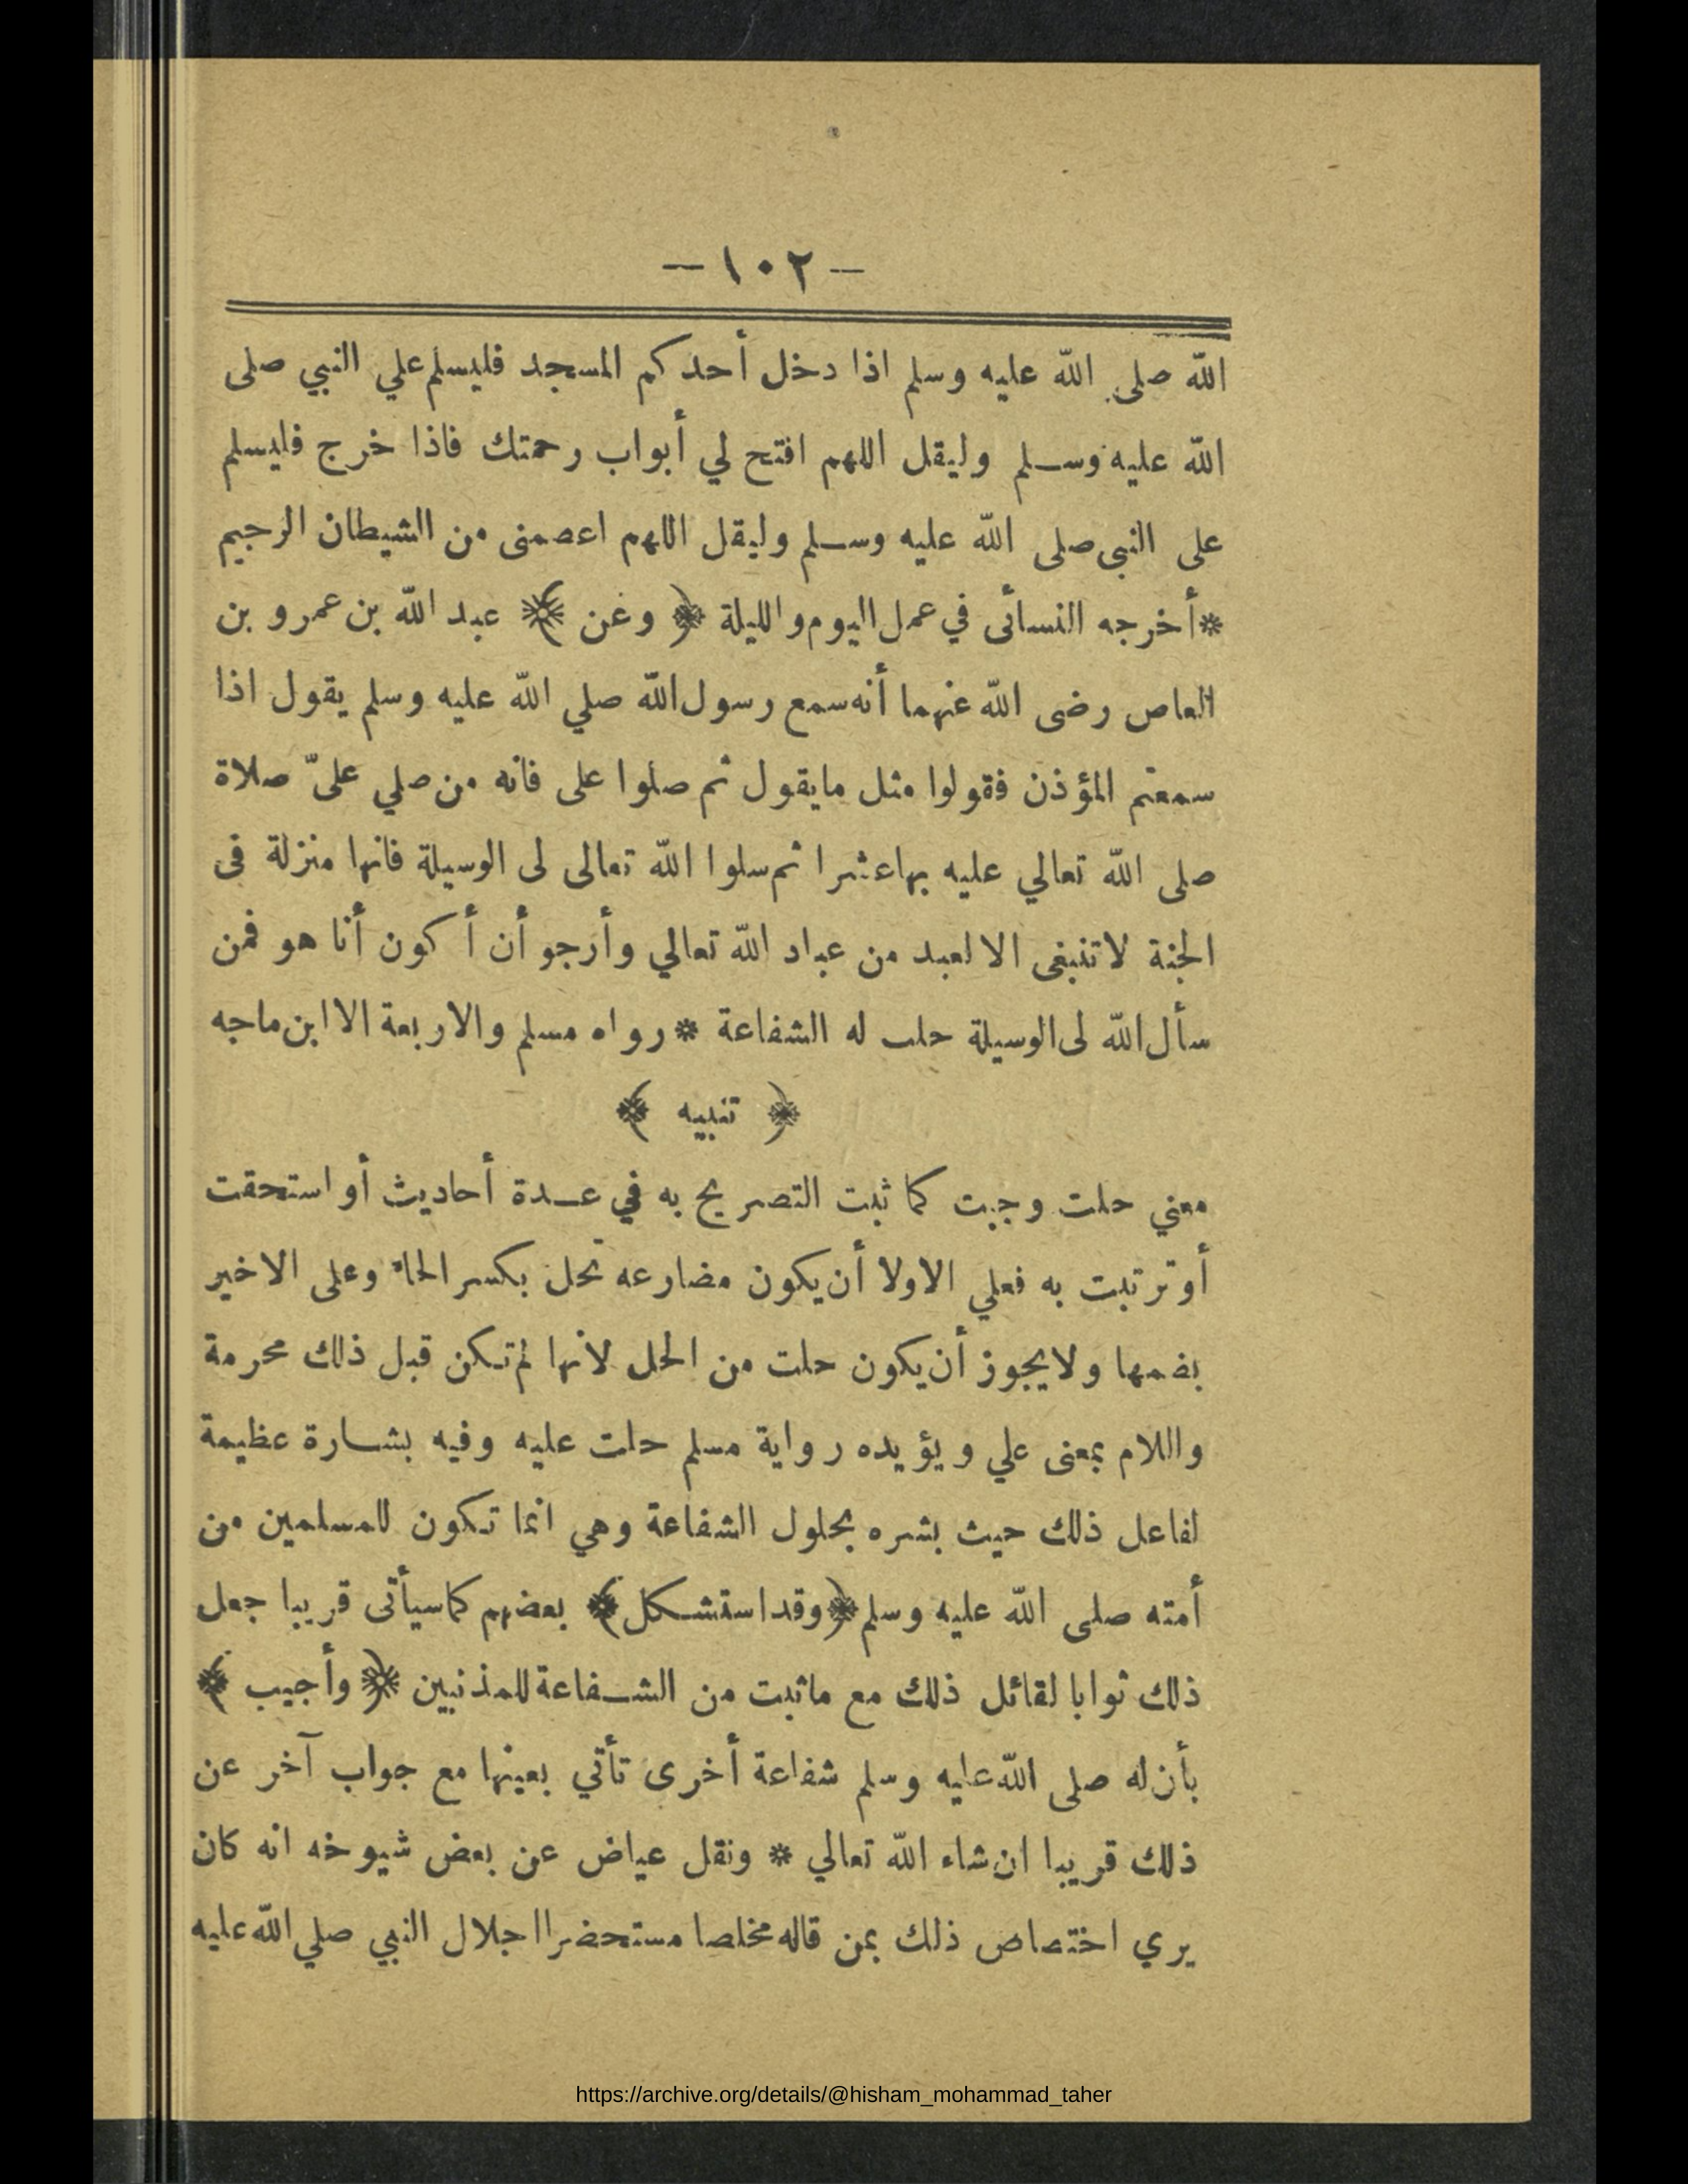 — ١٠٢ —
الله صلى الله عليه وسلم اذا دخل أحدكم المسجد فليسلم علي النبي صلى
الله عليه وسلم وليقل اللهم افتح لي أبواب رحمتك فاذا خرج فليسلم
على النبى صلى الله عليه وسلم وليقل اللهم اعصمنى من الشيطان الرجيم
*أخرجه النسائى في عمل اليوم والليلة ﴿ وعن ﴾ عبد الله بن عمرو بن
العاص رضى الله عنهما أنه سمع رسول الله صلي الله عليه وسلم يقول اذا
سمعتم المؤذن فقولوا مثل مايقول ثم صلوا على فانه من صلي علىّ صلاة
صلى الله تعالي عليه بها عشرا ثم سلوا الله تعالى لى الوسيلة فانها منزلة فى
الجنة لا تنبغى الا لعبد من عباد الله تعالي وأرجو أن أكون أنا هو فمن
سأل الله لى الوسيلة حلت له الشفاعة * رواه مسلم والاربعة الا ابن ماجه
﴿ تنبيه ﴾
معني حلت وجبت كما ثبت التصريح به في عدة أحاديث أو استحقت
أو ترتبت به فعلي الاولا أن يكون مضارعه تحل بكسر الحاء وعلى الاخير
بضمها ولا يجوز أن يكون حلت من الحل لأنها لم تكن قبل ذلك محرمة
واللام بمعنى علي ويؤيده رواية مسلم حلت عليه وفيه بشارة عظيمة
لفاعل ذلك حيث بشره بحلول الشفاعة وهي انما تكون للمسلمين من
أمته صلى الله عليه وسلم ﴿وقد استشكل﴾ بعضهم كما سيأتى قريبا جعل
ذلك ثوابا لقائل ذلك مع ماثبت من الشفاعة للمذنبين ﴿ وأجيب ﴾
بأن له صلى الله عليه وسلم شفاعة أخرى تأتي بعينها مع جواب آخر عن
ذلك قريبا ان شاء الله تعالي * ونقل عياض عن بعض شيوخه انه كان
يري اختصاص ذلك بمن قاله مخلصا مستحضرا اجلال النبي صلي الله عليه
https://archive.org/details/@hisham_mohammad_taher